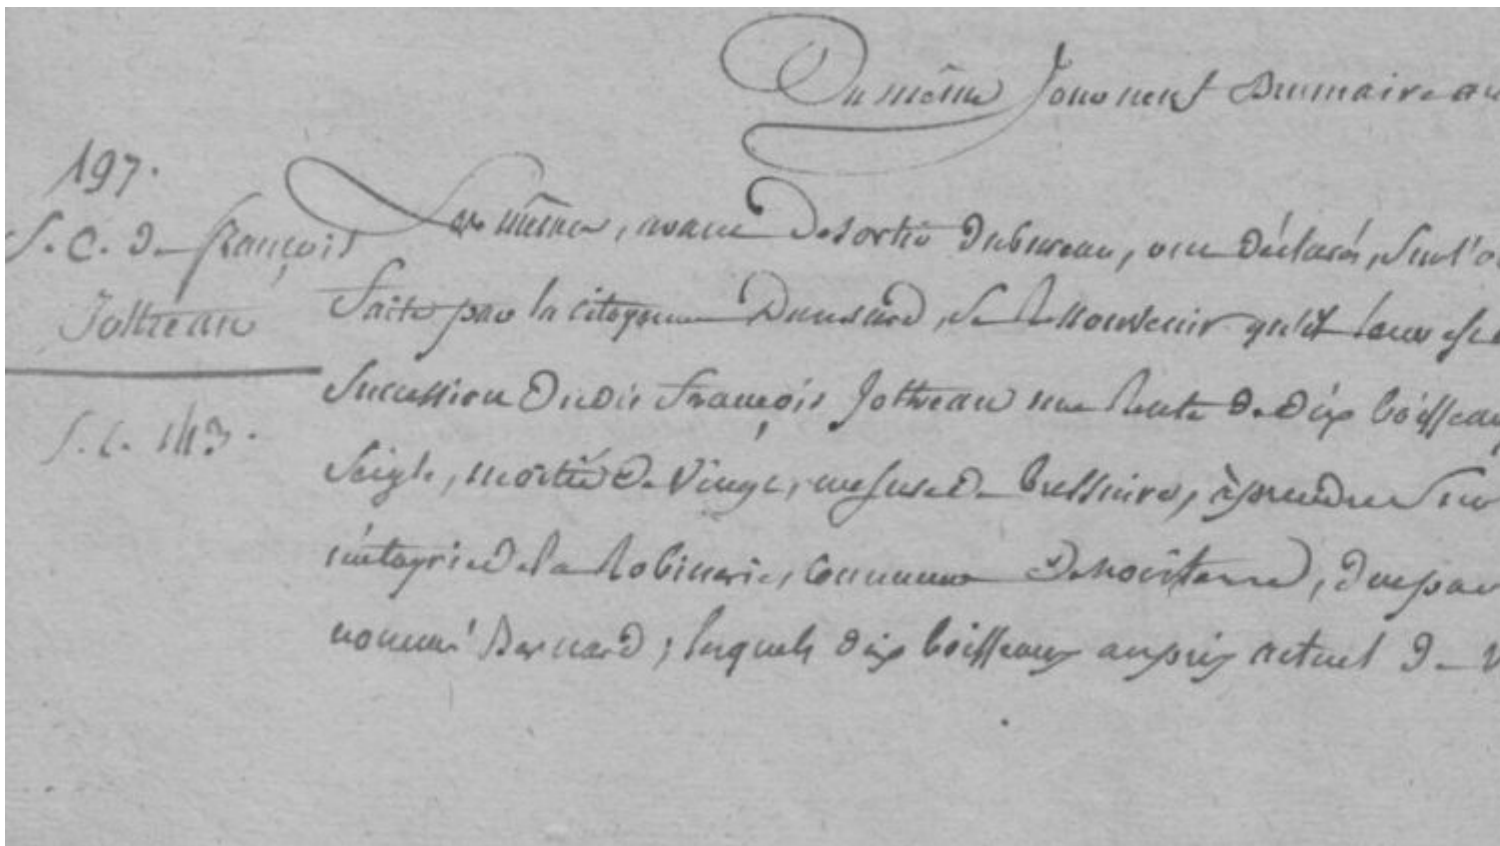 Du même Jour neuf Brumaire an
197.
S.C. de françois
Jottreau
S.C. 143.
Les mêmes, avant de sortir du bureau, ont déclaré, sur l'o
faite par la citoyenne Dunsard, se Ressouvenir qu'il leur est
Succession dudit françois Jottreau une Rente de dix boisseaux
Seigle, moitié de vingt, mesure de bressuire, à prendre sur
métayrie de la Robinerie, commune de noirterre, due par
nommé Bernard ; lesquels dix boisseaux au prix actuel de